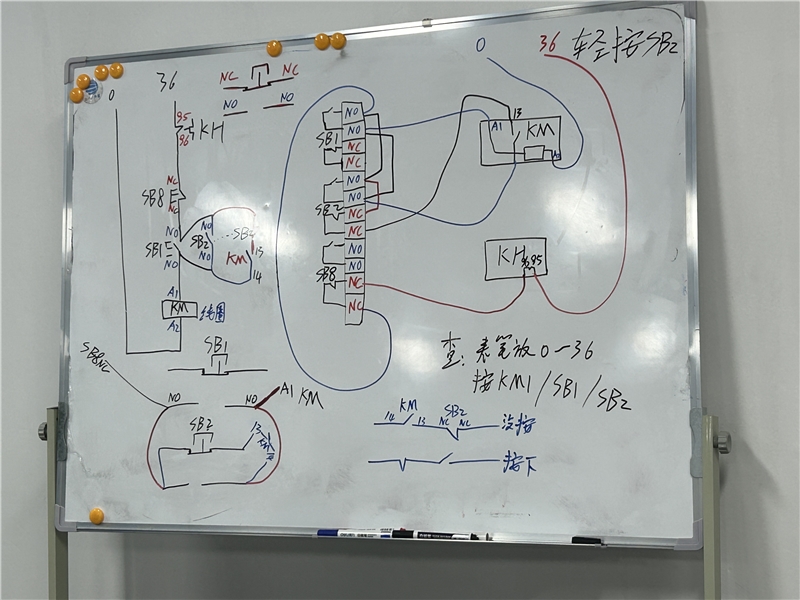 0 36
NC NC
NO NO
95
96 KH
NC
SB8
NC
NO
SB1
NO
NO
SB2
NO
SB2
KM
13
14
A1
KM 线圈
A2
SB1
SB8NC
NO NO A1 KM
SB2
13
NO
SB1 NO
NC
NC
NO
NO
SB2 NC
NC
NO
NO
SB8 NC
NC
0 36 轻按SB2
13
A1 KM
A2
KH 96 95
查: 表笔放0—36
按KM1/SB1/SB2
KM SB2
14 13 NC NC 没按
按下